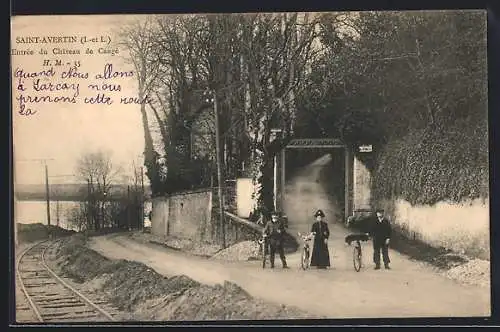 SAINT-AVERTIN (I.-et L.)
Entrée du Château de Cangé
H. M. - 35
Quand Nous allons
à Larcay nous
prenons cette route
La